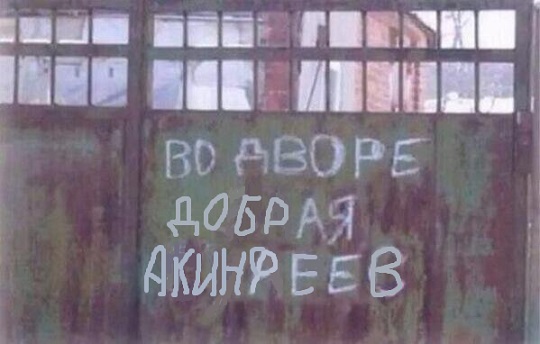 ВО ДВОРЕ
ДОБРАЯ
АКИНФЕЕВ